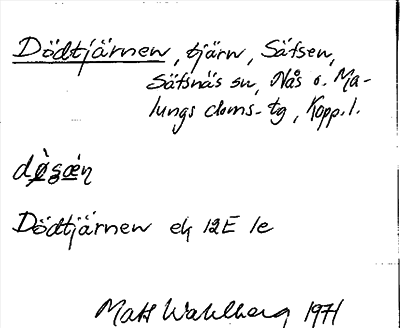 Dödtjärnen, tjärn, Säfsen,
Säfsnäs sn, Nås o. Ma-
lungs doms-tg, Kopp. l.
Dödtjärnen ek 12E 1e
Mats Wahlberg 1971